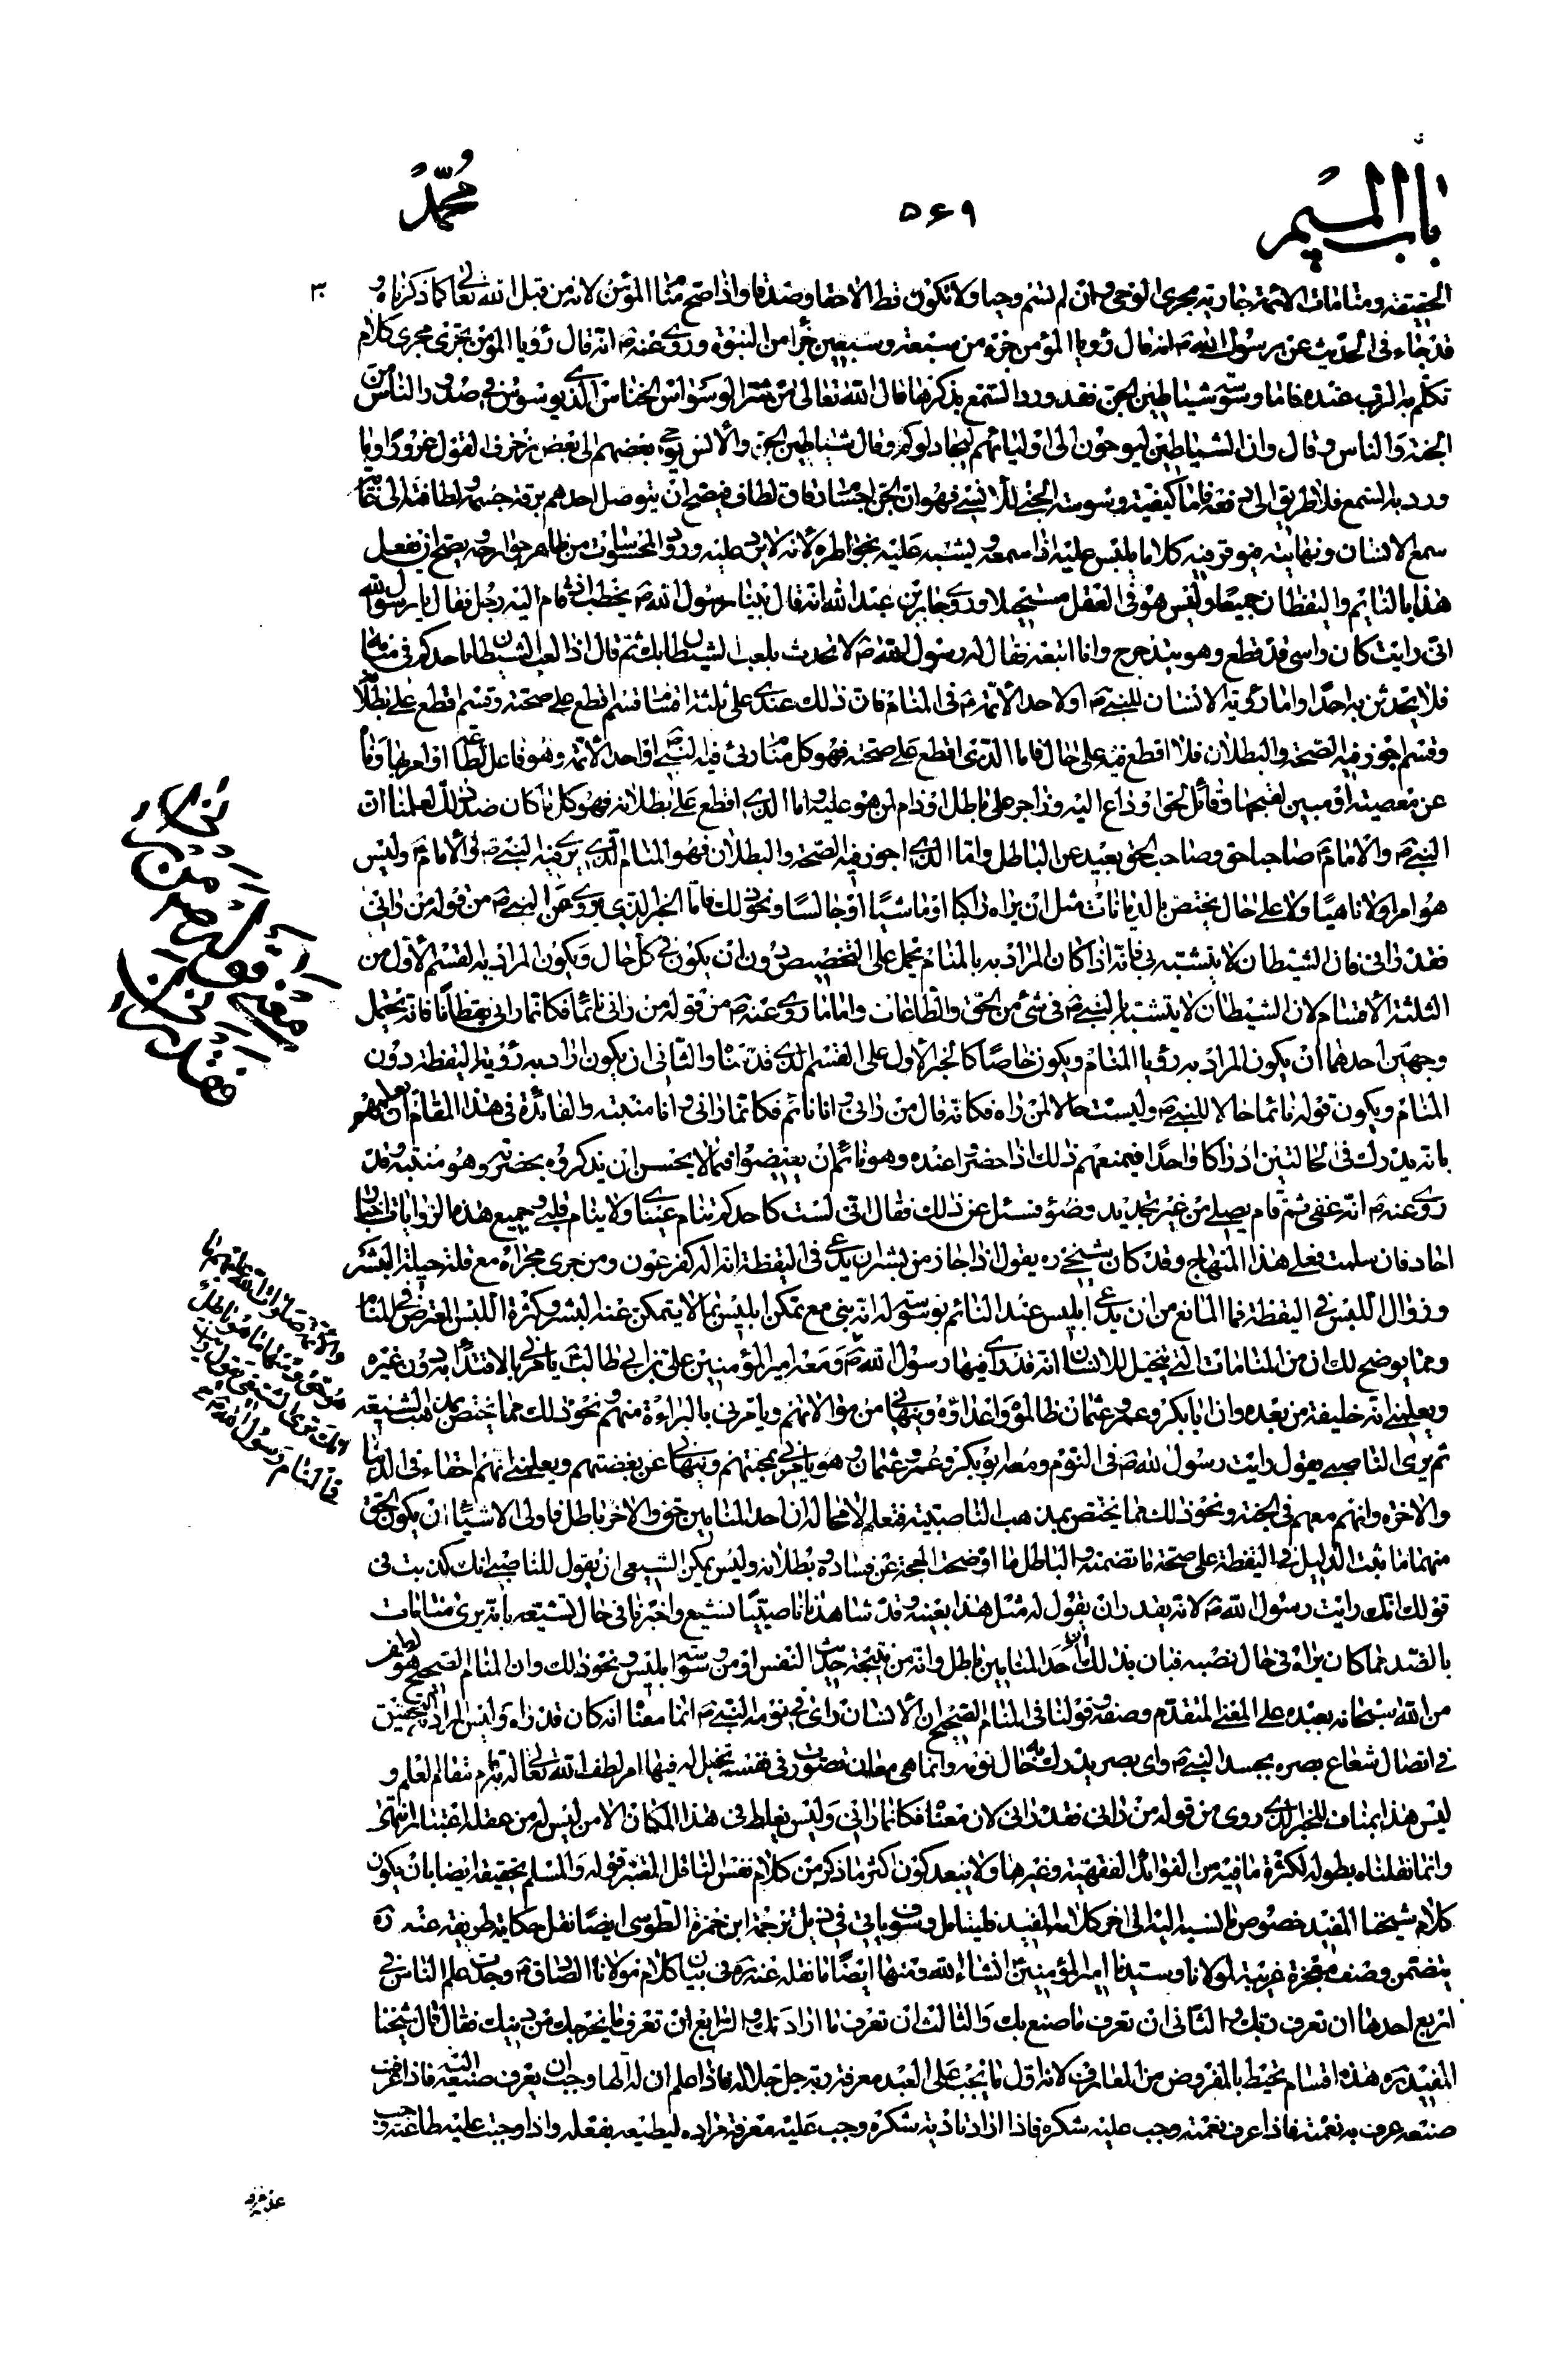 باب الميم
٥٦٩
محمد
الحقيقة ومنامات الائمة جارية مجرى الوحى وان لم تسم وحيا ولا تكون قط الا حقا وصدقا واذا صح منام المؤمن لانه من قبل الله تعالى كما ذكرناه و
قد جاء فى الحديث عن رسول الله ص انه قال رؤيا المؤمن جزء من سبعة وسبعين جزأ من النبوة وروى عنه ص انه قال رؤيا المؤمن تجرى مجرى كلام
تكلم به الرب عنده فاما وسوسة شياطين الجن فقد ورد السمع بذكرها قال الله تعالى من شر الوسواس الخناس الذى يوسوس فى صدور الناس من
الجنة والناس وقال وان الشياطين ليوحون الى اوليائهم ليجادلوكم وقال شياطين الجن والانس يوحى بعضهم الى بعض زخرف القول غرورا وما
ورد به السمع فلا طريق الى دفعه فاما كيفية وسوسة الجنى للانسى فهو ان الجن اجسام رقاق لطاف فيصح ان يتوصل احدهم برقة جسمه ولطافته الى غاية
سمع الانسان ونهايته فيوقر فيه كلاما يلبس عليه اذا سمعه ويشبه عليه بخواطره لانه لا يرد عليه ورود المحسوسات من ظاهر جوارحه ويصح ان يفعل
هذا بالنايم واليقظان جميعا وليس هو فى العقل مستحيلا وروى جابر بن عبد الله انه قال بينا رسول الله ص يخطب اذ قام اليه رجل فقال يا رسول الله
انى رايت كان راسى قد قطع وهو يتدحرج وانا اتبعه فقال له رسول الله ص لا تحدث بلعب الشيطان بك ثم قال اذا لعب الشيطان باحدكم فى منامه
فلا يحدثن به احدا واما رؤية الانسان للنبى ص او لاحد الائمة ع فى المنام فان ذلك عندى على ثلثة اقسام قسم اقطع على صحته وقسم اقطع على بطلانه
وقسم اجوز فيه الصحة والبطلان فلا اقطع فيه على حال فاما الذى اقطع على صحته فهو كل منام رئى فيه النبى ص او احد الائمة وهو فاعل لطاعة او امر بها وناه
عن معصية او مبين لقبحها وقائل لحق او داع اليه وزاجر على باطل او ذام لمن هو عليه واما الذى اقطع على بطلانه فهو كل ما كان ضد ذلك لعلمنا ان
النبى ص والامام ع صاحبا حق وصاحب الحق بعيد عن الباطل واما الذى اجوز فيه الصحة والبطلان فهو المنام الذى يرى فيه النبى ص او الامام ع وليس
هو امرا ولا ناهيا ولا على حال يختص بالديانات مثل ان يراه راكبا او ماشيا او جالسا ونحو ذلك فاما الخبر الذى يروى عن النبى ص من قوله من رانى
فقد رانى فان الشيطان لا يتشبه بى فانه اذا كان المراد به بالمنام يحمل على التخصيص دون ان يكون فى كل حال ويكون المراد به القسم الاول من
الثلثة الاقسام لان الشيطان لا يتشبه بالنبى ص فى شئ من الحق والطاعات واما ما روى عنه ص من قوله من رانى نائما فكانما رانى يقظانا فانه يحتمل
وجهين احدهما ان يكون المراد به رؤيا المنام ويكون خاصا كالخبر الاول على القسم الذى قدمناه والثانى ان يكون اراد به رؤية اليقظة دون
المنام ويكون قوله نائما حالا للنبى ص وليست حالا لمن راه فكانه قال من رانى وانا نائم فكانما رانى وانا منتبه والفائدة فى هذا المقام ان يعلمهم
بانه يدرك فى الحالتين ادراكا واحدا فيمنعهم ذلك اذا حضروا عنده وهو نائم ان يفيضوا فيما لا يحسن ان يذكروه بحضرته وهو منتبه وقد
روى عنه ص انه غفى ثم قام يصلى من غير تجديد وضوء فسئل عن ذلك فقال انى لست كاحدكم تنام عيناى ولا ينام قلبى وجميع هذه الروايات اخبار
احاد فان سلمت فعلى هذا المنهاج وقد كان شيخى ره يقول اذا جاز من بشر ان يدعى فى اليقظة انه اله كفرعون ومن جرى مجراه مع قلة حيلة البشر
وزوال اللبس فى اليقظة فما المانع من ان يدعى ابليس عند النائم بوسوسته له انه نبى مع تمكن ابليس بما لا يتمكن عنه البشر وكثرة اللبس المعترض فى المنام
ومما يوضح لك ان من المنامات التى يتخيل للانسان انه قد راى فيها رسول الله ص ومعه امير المؤمنين على بن ابى طالب يامرنى بالاقتداء به دون غيره
ويعلمنى انه خليفة من بعده وان ابا بكر وعمر وعثمان ظالموه واعداؤه وينهانى من موالاتهم ويامرنى بالبراءة منهم ونحو ذلك مما يختص بمذهب الشيعة
ثم يرى الناصبى يقول رايت رسول الله ص فى النوم ومعه ابو بكر وعمر وعثمان وهو يامرنى بمحبتهم وينهانى عن بغضتهم ويعلمنى انهم احقاء فى الدنيا
والاخرة وانهم معهم فى الجنة ونحو ذلك مما يختص بمذهب الناصبية فنعلم لا محالة ان احد المنامين حق والاخر باطل فاولى الاشياء ان يكون الحق
منهما ما ثبت الدليل فى اليقظة على صحة ما تضمنه والباطل ما اوضحت الحجة عن فساده وبطلانه وليس يمكن الشيعى ان يقول للناصبى انك كذبت فى
قولك انك رايت رسول الله ص لانه يقدر ان يقول له مثل هذا بعينه وقد شاهدنا ناصبيا تشيع واخبرنا فى حال تشيعه بانه يرى منامات
بالضد مما كان يراه فى حال نصبه فبان بذلك ان احد المنامين باطل وانه من نتيجة حديث النفس او من وسوسة ابليس ونحو ذلك وان المنام الصحيح هو لطف
من الله سبحانه بعبده على المعنى المتقدم وصفه وقولنا فى المنام الصحيح ان الانسان راى فى نومه النبى ص انما معناه انه كان قد راه وليس المراد به التحقيق
فى اتصال شعاع بصره بجسد النبى ص واى بصر يدرك به حال نومه وانما هى معان تصورت فى نفسه تخيل له فيها امر لطف الله تعالى له به قام مقام العلم و
ليس هذا بمناف للخبر الذى روى من قوله من رانى فقد رانى لان معناه فكانما رانى وليس يغلط فى هذا المكان الا من ليس له من عقله اعتبار انتهى
وانما نقلناه بطوله لكثرة ما فيه من الفوائد الفقهية وغيرها ولا يبعد كون اكثر ما ذكر من كلام نفس الناقل المعتبر قوله والمسلم تحقيقه ايضا بان يكون
كلام شيخنا المفيد خصوص ما نسبه اليه الى اخر كلامه المفيد فليتامل وسوف ياتى فى ذيل ترجمة ابن حمزة الطوسى ايضا نقل حكاية طريفة عنه ره
يتضمن وصف معجزة غريبة لمولانا وسيدنا امير المؤمنين انشاء الله ومنها ايضا ما نقله عنه ره فى بيان كلام مولانا الصادق ع وجدت علم الناس فى
اربع احدها ان تعرف ربك والثانى ان تعرف ما صنع بك والثالث ان تعرف ما اراد منك والرابع ان تعرف ما يخرجك من دينك فقال قال شيخنا
المفيد ره هذه اقسام تحيط بالمفروض من المعارف لانه اول ما يجب على العبد معرفة ربه جل جلاله فاذا علم ان له الها وجب ان يعرف صنيعه اليه فاذا عرف
صنيعه عرف به نعمته فاذا عرف نعمته وجب عليه شكره فاذا اراد تادية شكره وجب عليه معرفة مراده ليطيعه بفعله واذا وجبت عليه طاعته وجب